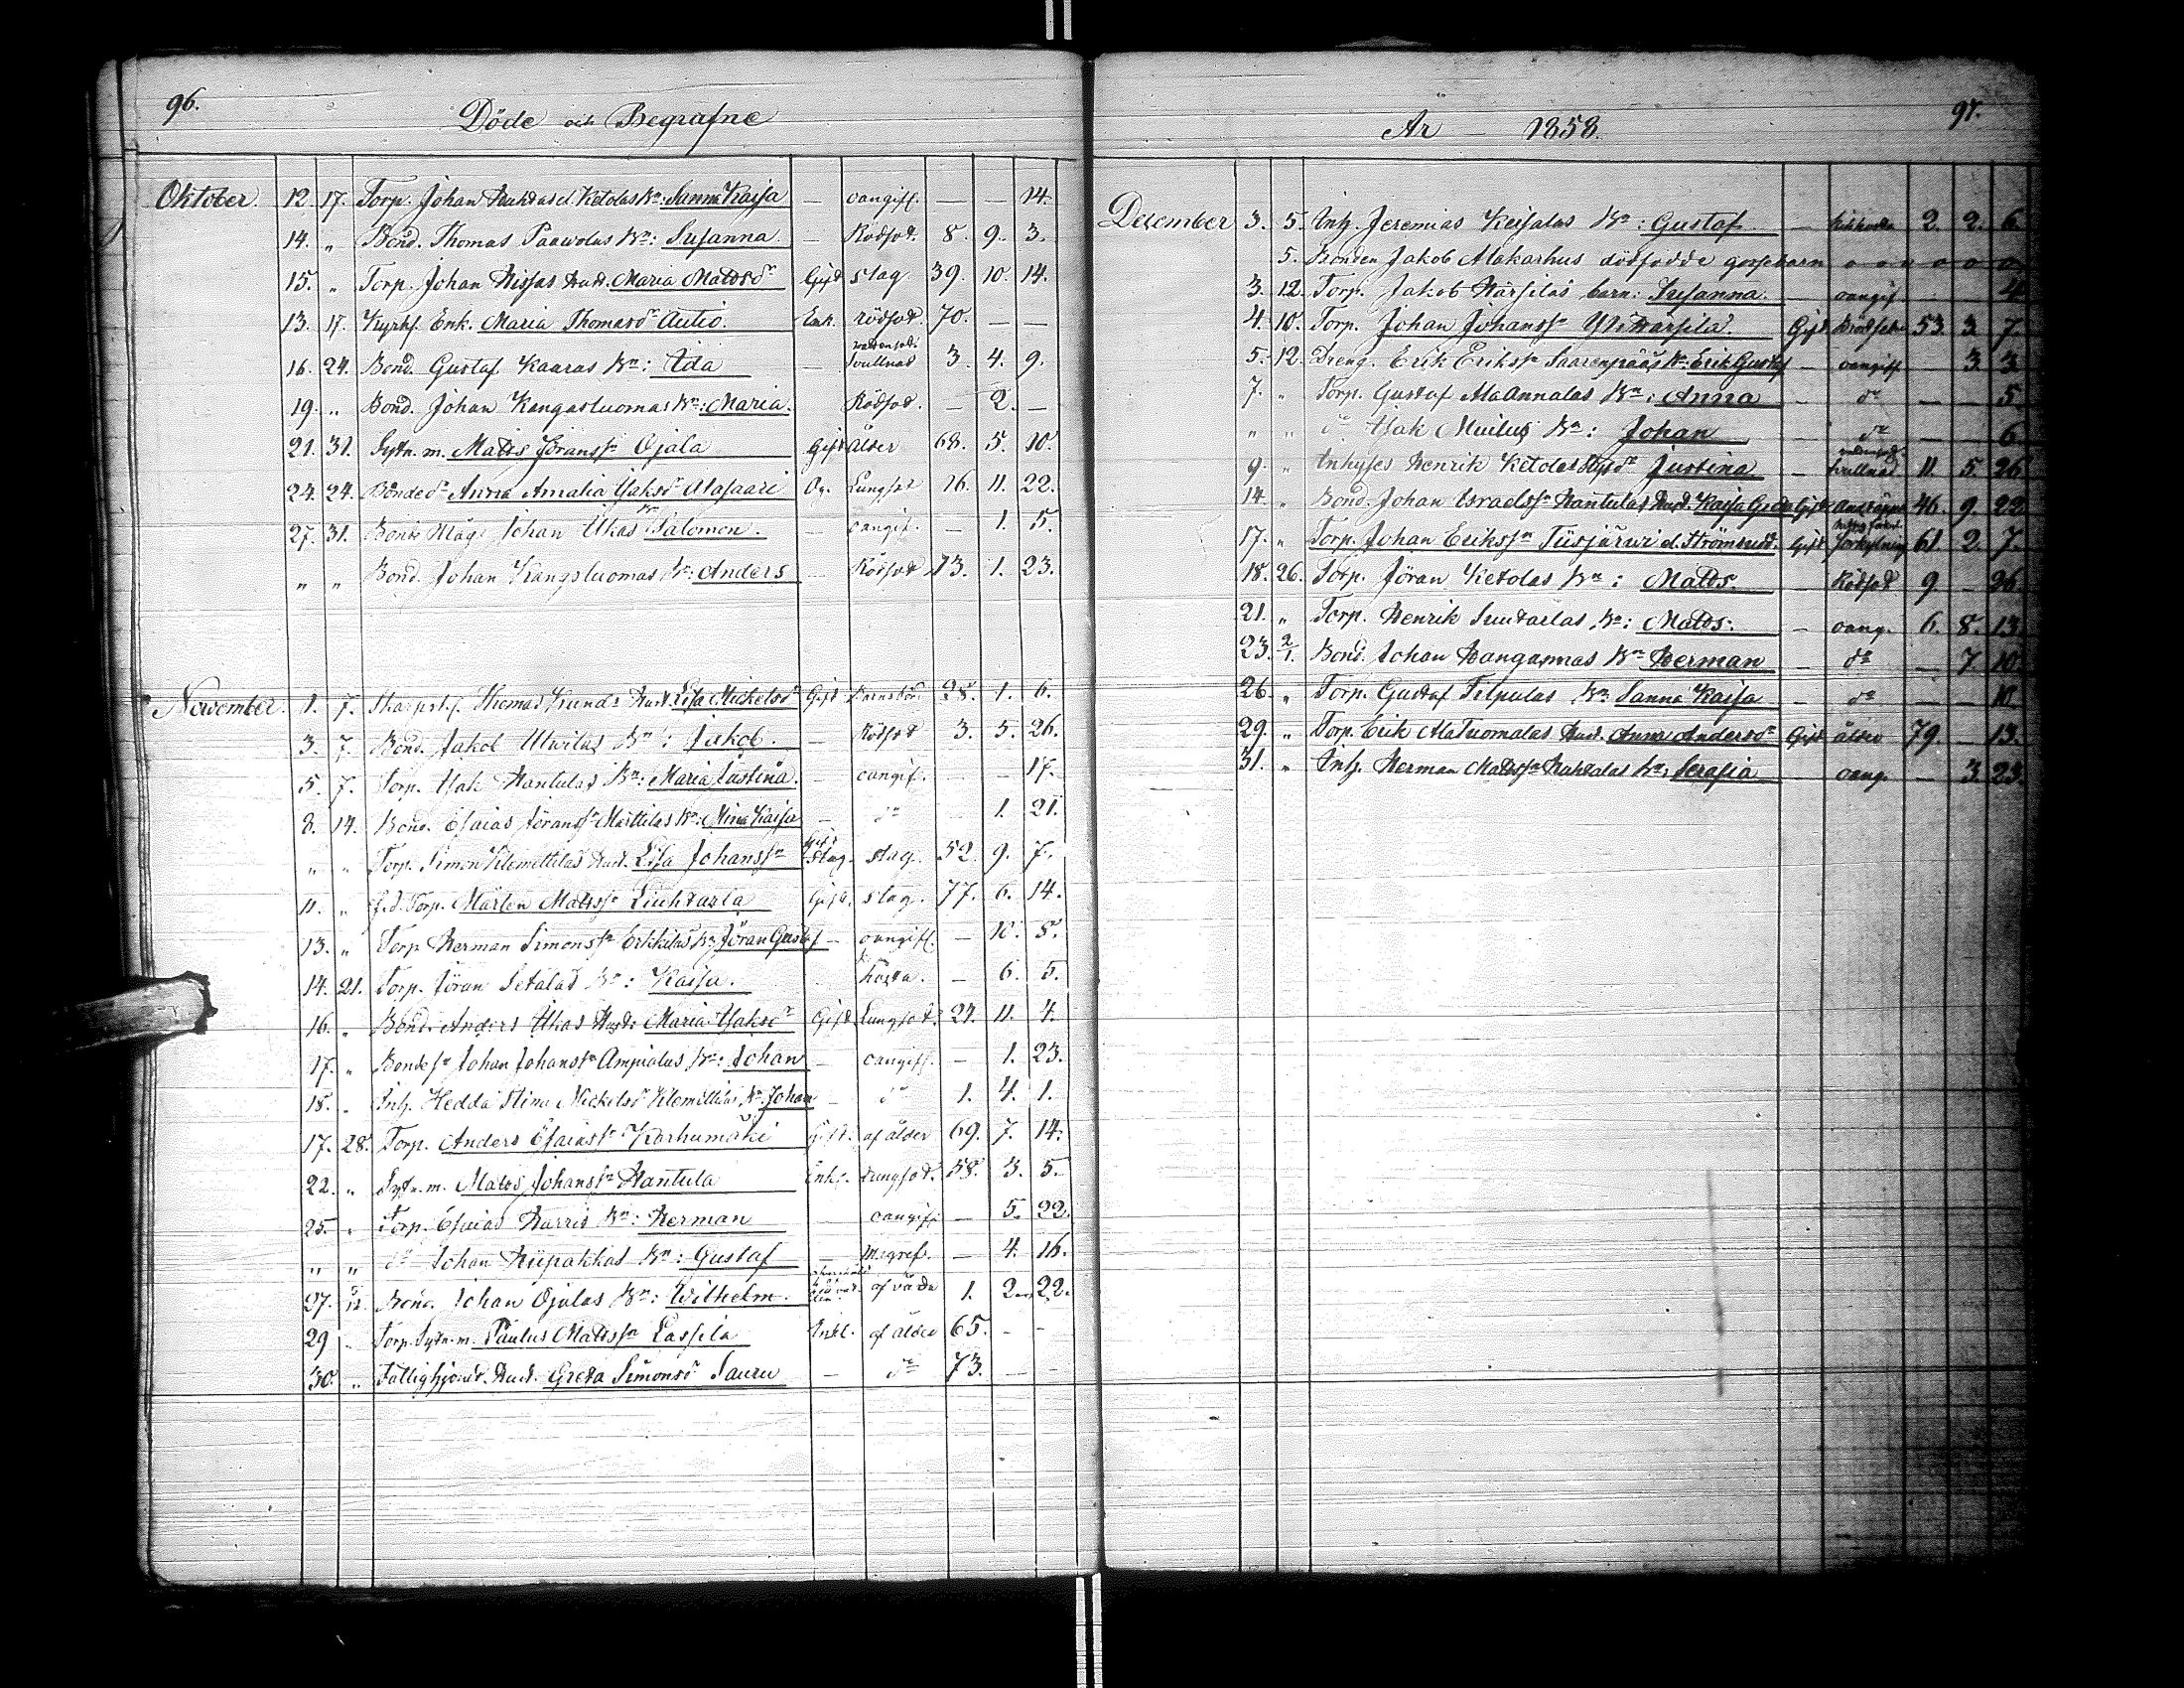 96.
Döde och Begrafne
Oktober 12. 17. Torp. Johan Ketolas Bn: Sanna Kaisa — oangif. — — 14.
14. " Bond. Thomas Paawolas Bn: Susanna — Rödsot. 8. 9. 3.
15. " Torp. Johan Hissas Hust. Maria Matsdr Gift slag 39. 10. 14.
13. 17. Kyrkf. Enk. Maria Thomasdr Autio. Enk. rödsot. 70. — —
16. 24. Bond. Gustaf Kaaras Bn: Ida — vattensot. svullnad 3. 4. 9.
19. " Bond. Johan Kangasluomas Bn: Maria. Rödsot. — 2. —
21. 31. Sytn. m. Matts Jöranssn Ojala Gift Ålder 68. 5. 10.
24. 24. Bondedr Anna Amalia Isaksdr Alasaari Og. Lungsot 16. 11. 22.
27. 31. Bond. Måg Johan Ukas Bn Salomon. — oangif. — 1. 5.
" " Bond. Johan Kangasluomas Bn: Anders — Rödsot 13. 1. 23.
November. 1. 7. Skarpsk. Thomas Hust. Lisa Mickelsdr Gift Barnsbörd 28. 1. 6.
3. 7. Bond. Jakob Bn: Jakob. — Rödsot 3. 5. 26.
5. 7. Torp. Isak Hantulas Bn: Maria Justina. — oangif. — — 17.
8. 14. Bond. Esaias Jöranssn Marttilas Bn: Mina Kaisa — do 1. 21.
" " Torp. Simon Klemettilas Hust. Lisa Johanssn Gift slag. 52. 9. 7.
11. " f.d. Torp. Mårten Matssn Liuhtarla Gift. slag. 77. 6. 14.
13. " Torp Herman Simonssn Erkkilas Bn Jöran Gustaf — oangif. — 10. 8.
14. 21. Torp. Jöran Setalas Bn: Kaisa. hosta. — 6. 5.
16. " Bond. Anders Ukas Hust: Maria Isaksdr Gift Lungsot. 27. 11. 4.
17. " Bondesn Johan Johanssn Ampialas Bn: Johan — oangif. — 1. 23.
18. " Inh. Hedda Stina Mickelsdr Klemettilas Bn Johan — do 1. 4. 1.
17. 28. Torp. Anders Esaiassn Karhumäki Gift. af ålder 69. 7. 14.
22. " Sytn. m. Matts Johanssn Hantula Enkl. Lungsot. 58. 3. 5.
25. " Torp. Esaias Harris Bn: Herman oangif. — 5. 22.
" " do Johan Riipakkas Bn: Gustaf — Magref. — 4. 16.
27. 5/12. Bond. Johan Ojalas Bn: Wilhelm. af våda 1. 2. 22.
29 " Torp. Sytn. m. Paulus Matssn Lassila Enkl. af ålder 65. - -
30. " Fattighjons Hust. Greta Simonsdr Sauru — do 73. — —
År — 1858.
97.
December 3. 5. Inh. Jeremias Keisalas Bn: Gustaf — kikhosta 2. 2. 6.
5. Bonden Jakob Alakarhus dödfödde gossebarn o o o o o o
3. 12. Torp. Jakob Härsilas barn: Susanna. — oangif. 4
4. 10. Torp. Johan Johanssn Gift 53. 3. 7.
5. 12. Dreng. Erik Erikssn Saarenpääs Bn: Erik Gustaf — oangif. 3. 3
7. " Torp. Gustaf AlaAnnalas Bn: Anna — do — — 5.
" " do Isak Muilus Bn: Johan — do — 6
9. " Inhyses Henrik Ketolas Justina — vattensot. svullnad 11. 5. 26
14. " Bond. Johan Israelssn Hantulas Hust. Kaisa Greta Gift 46. 9. 22
17. " Torp. Johan Erikssn Tiisjärwi el. Gift förkylning 61. 2. 7.
18. 26. Torp. Jöran Ketolas Bn: Matts. Rödsot 9. — 26.
21. " Torp. Henrik Luutarlas Bn: Matts. — oang. 6. 8. 13.
23. 2/1. Bond. Johan Hanganmas Bn Herman — do — 7. 10.
26. " Torp. Gustaf Telpulas Bn Sanna Kaisa — do — — 10
29. " Torp. Erik AlaTuomalas Hust. Anna Andersdr Gift ålder 79 — 13.
31. " Inh. Herman Matssn Bn, Serafia oang. — 3. 23.